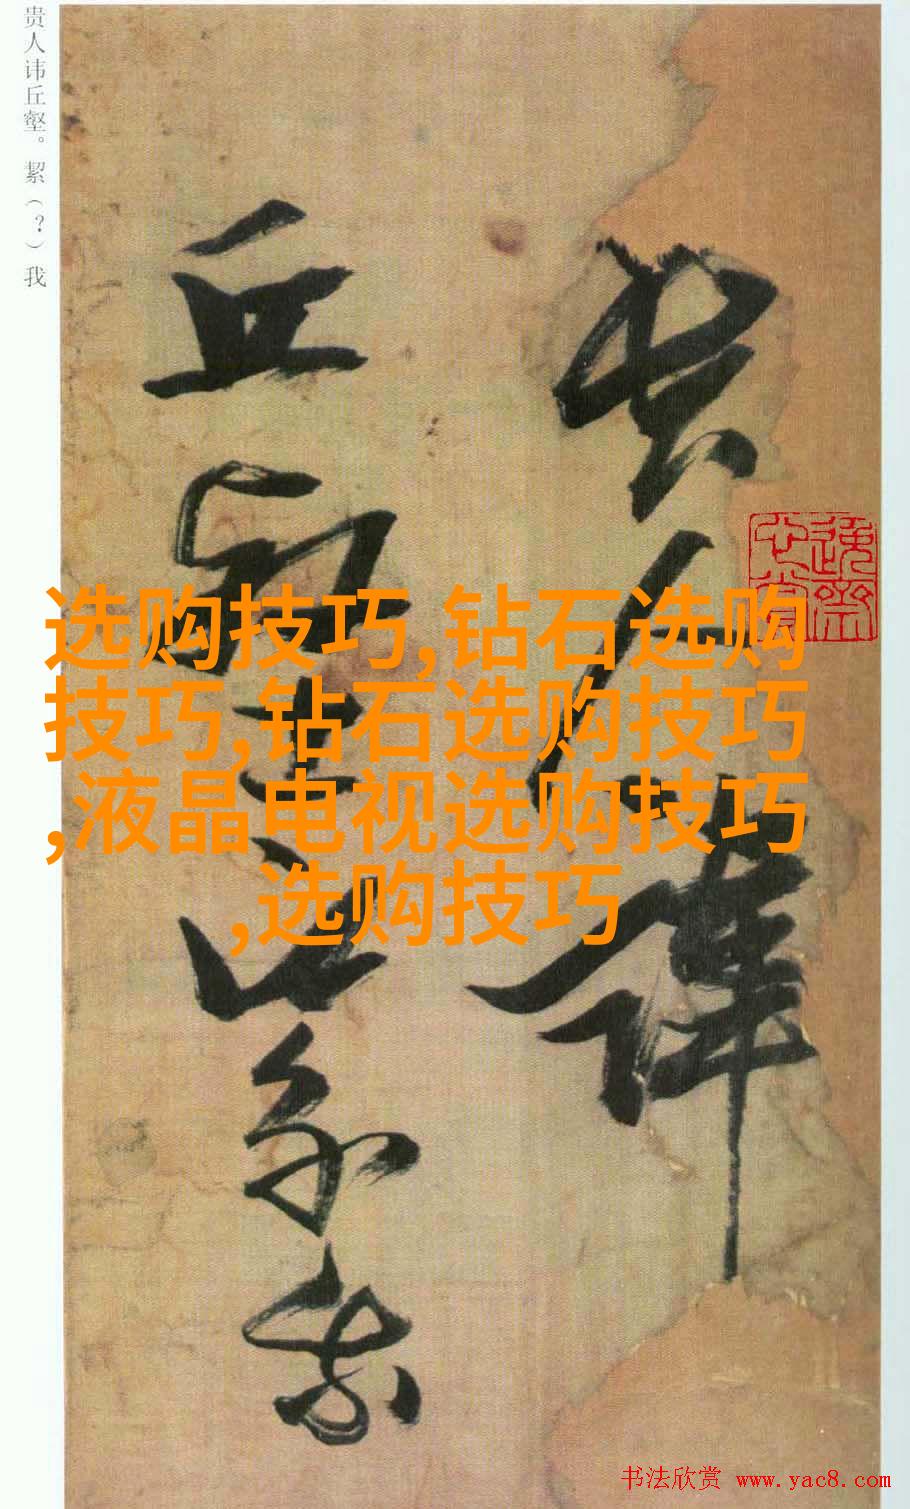 贵人讳丘壑。絜（?）我
贵人讳
丘壑
选购技巧,钻石选购
技巧,钻石选购技巧
,液晶电视选购技巧
,选购技巧
书法欣赏 www.yac8.com